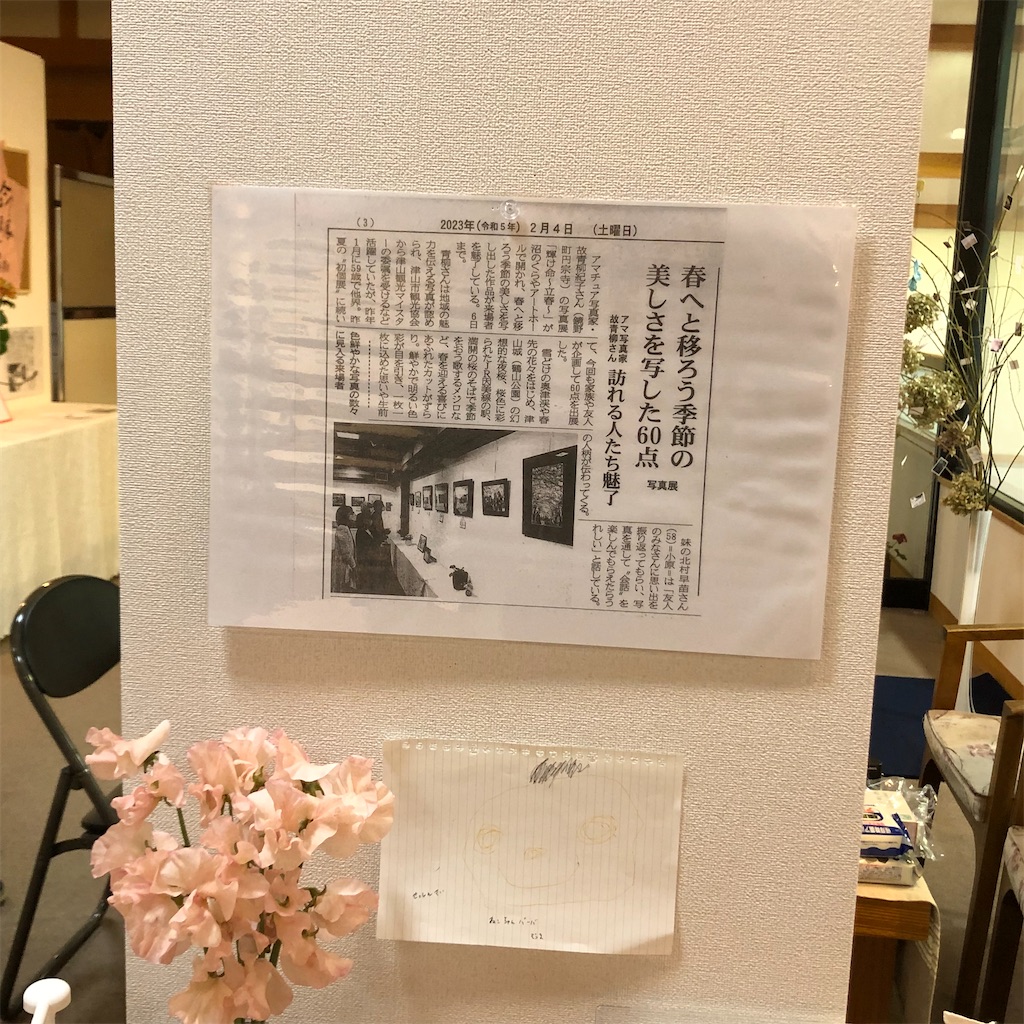 (3)
2023年(令和5年) 2月4日 (土曜日)
春へと移ろう季節の
美しさを写した60点
写真展
アマ写真家
故青柳さん
訪れる人たち魅了
アマチュア写真家・
故青柳紀子さん(鏡野
町円宗寺)の写真展
「輝け命〜立春〜」が
沼のくらやアートホー
ルで開かれ、春へと移
ろう季節の美しさを写
し出した作品が来場者
を魅了している。6日
まで。
青柳さんは地域の魅
力を伝える写真が認め
られ、津山市観光協会
から津山観光マイスタ
ーの委嘱を受けるなど
活躍していたが、昨年
1月に59歳で他界。昨
夏の〝初個展〟に続い
て、今回も家族や友人
が企画して60点を出展
した。
雪どけの奥津渓や春
先の花々をはじめ、津
山城(鶴山公園)の幻
想的な夜桜、桜色に彩
られたJR因美線の駅、
満開の桜のそばで季節
をおう歌するメジロな
ど、春を迎える喜びに
あふれたカットがずら
り。鮮やかで明るい色
彩が目を引き、一枚一
枚に込めた思いや生前
の人柄が伝わってくる。
妹の北村早苗さん
(58)=小原=は「友人
のみなさんに思い出を
振り返ってもらい、写
真を通して〝会話〟を
楽しんでもらえたらう
れしい」と話している。
色鮮やかな写真の数々
に見入る来場者